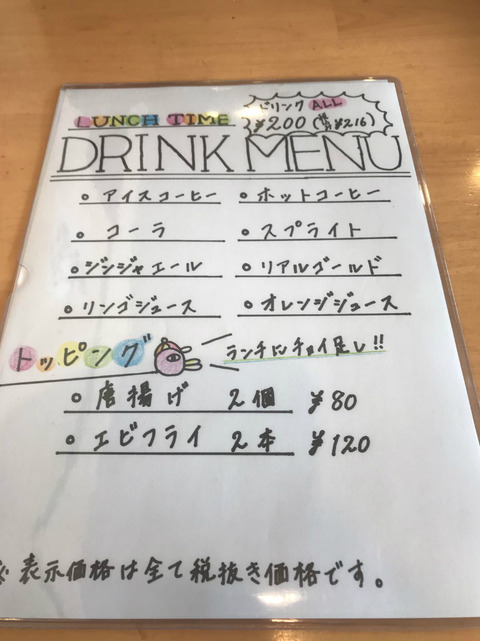 ドリンク ALL
LUNCH TIME ¥200 (税込 ¥216)
DRINK MENU
○ アイスコーヒー ○ ホットコーヒー
○ コーラ ○ スプライト
○ ジンジャエール ○ リアルゴールド
○ リンゴジュース ○ オレンジジュース
トッピング ランチにチョイ足し!!
○ 唐揚げ 2個 ¥80
○ エビフライ 2本 ¥120
※表示価格は全て税抜き価格です。